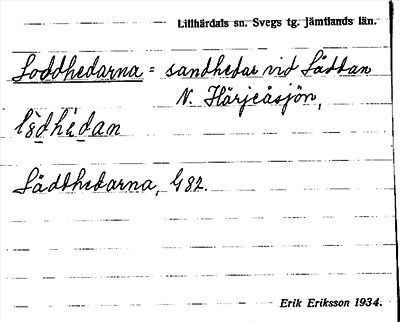 Lillhärdals sn. Svegs tg. Jämtlands län.
Loddhedarna = sandhedar vid Låddan
N. Härjeåsjön,
Lådhedarna, G 82.
Erik Eriksson 1934.